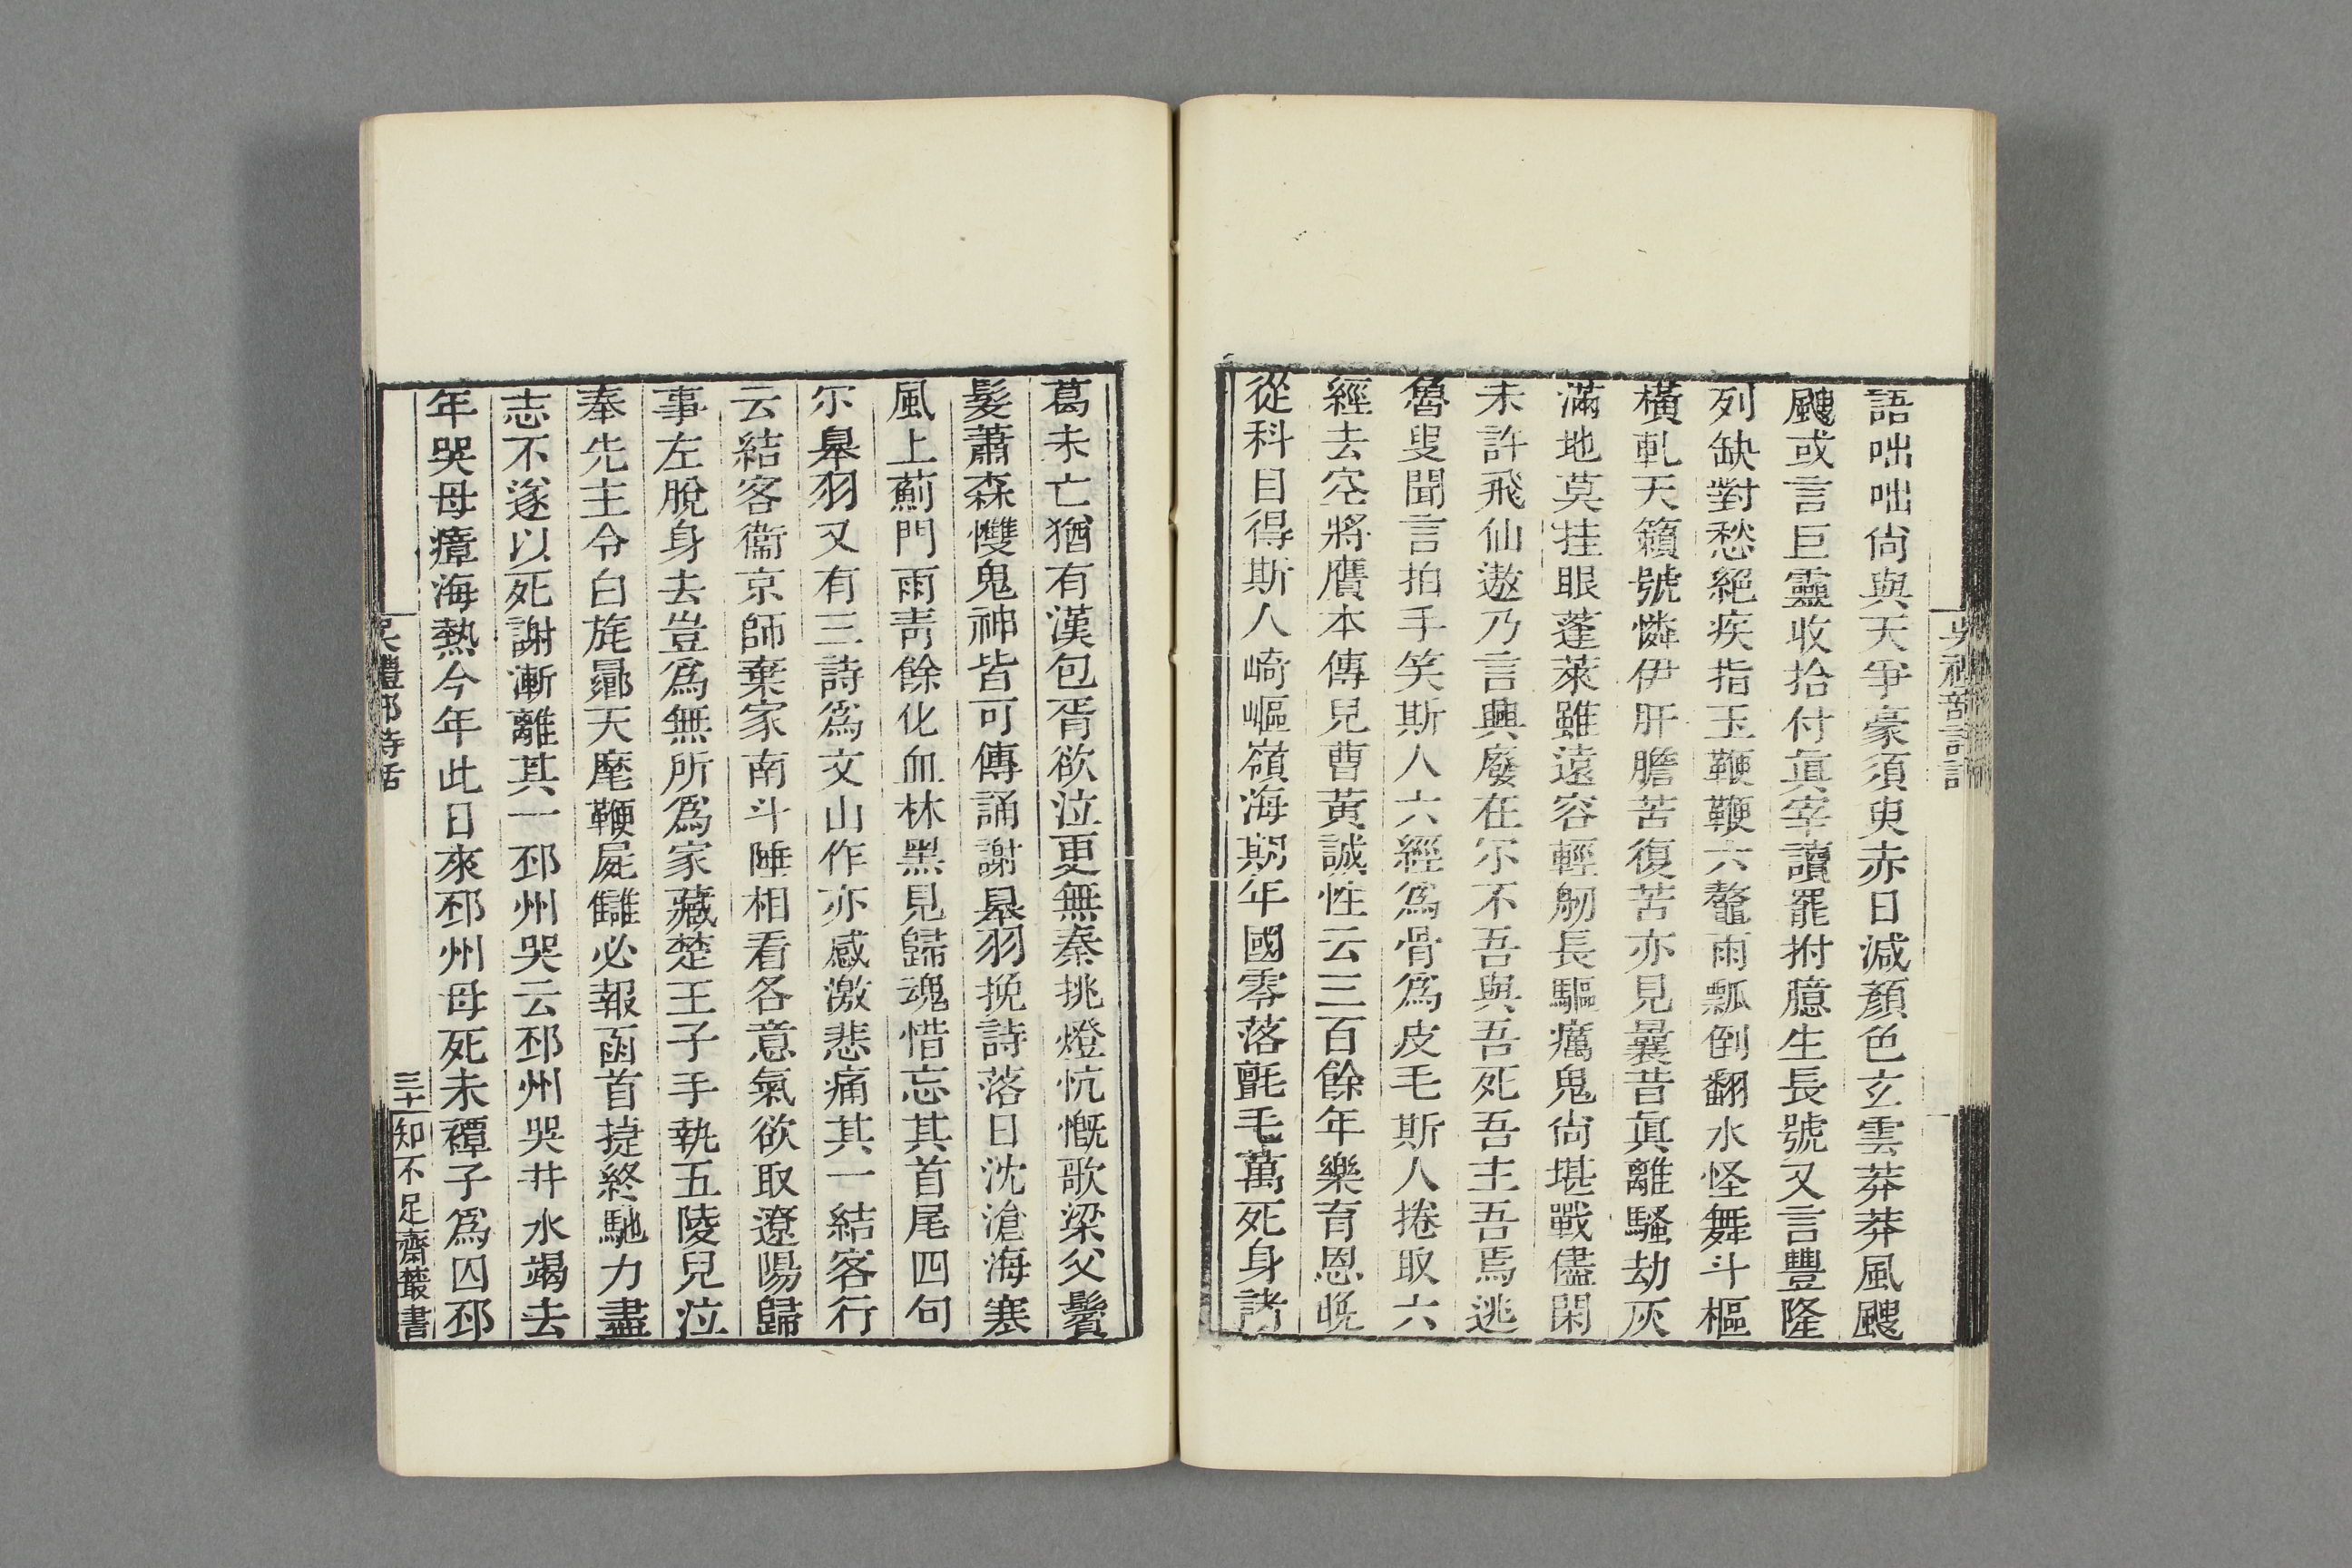 語咄咄尙與天爭豪須臾赤日減顏色玄雲莽莽風颼
颼或言巨靈收拾付眞宰讀罷拊臆生長號又言豐隆
列缺對愁絕疾指玉鞭鞭六鼇雨瓢倒翻水怪舞斗樞
橫軋天籟號憐伊肝膽苦復苦亦見曩昔眞離騷劫灰
滿地莫挂眼蓬萊雖遠容輕舠長驅癘鬼尙堪戰儘閑
未許飛仙遨乃言興廢在尔不吾與吾死吾主吾焉逃
魯叟聞言拍手笑斯人六經爲骨爲皮毛斯人捲取六
經去空將贗本傳兒曹黃誠性云三百餘年樂育恩晩
從科目得斯人崎嶇嶺海期年國零落氈毛萬死身諸
葛未亡猶有漢包胥欲泣更無秦挑燈忼慨歌梁父鬢
髮蕭森䕺鬼神皆可傳誦謝皋羽挽詩落日沈滄海寒
風上薊門雨靑餘化血林黑見歸魂惜忘其首尾四句
尔皋羽又有三詩爲文山作亦感激悲痛其一結客行
云結客衞京師棄家南斗陲相看各意氣欲取遼陽歸
事左脫身去豈爲無所爲家藏楚王子手執五陵兒泣
奉先主令白旄曏天麾鞭屍讎必報函首捷終馳力盡
志不遂以死謝漸離其一邳州哭云邳州哭井水竭去
年哭母瘴海熱今年此日來邳州母死未禫子爲囚邳
吳禮部詩話
三十
知不足齋叢書